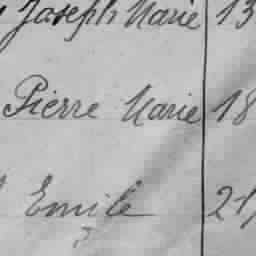 Joseph Marie 13
Pierre Marie 18
Emile 21